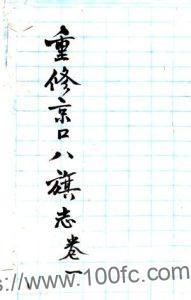 重修京口八旗志卷一
s://www.100fc.com